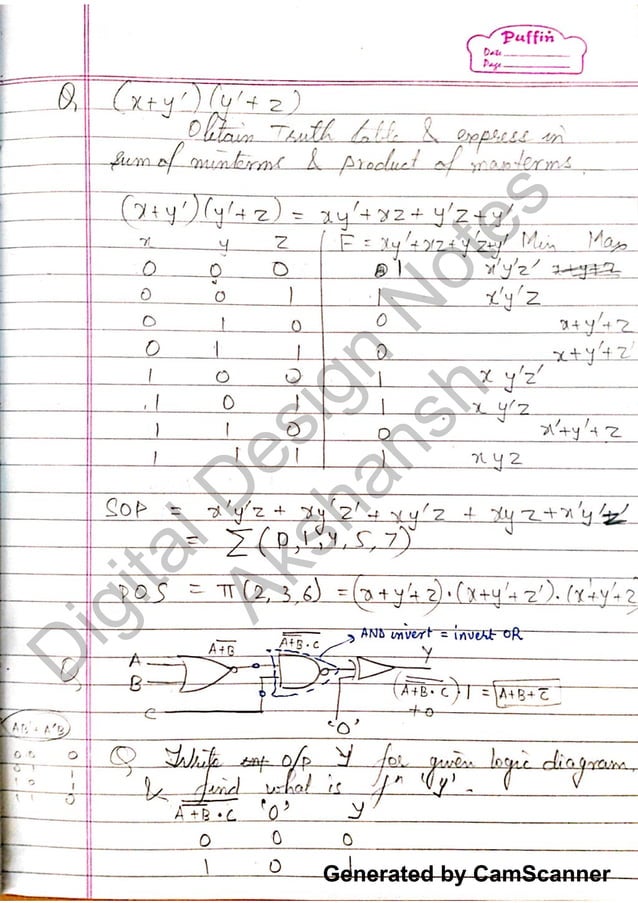 Puffin
Date
Page
Q, (x+y')(y'+z)
Obtain Truth table & express in
sum of minterms & product of maxterms.
(x+y')(y'+z) = xy'+xz+y'z+y'
x y z F = xy'+xz+y'z+y' Min Max
0 0 0 1 x'y'z' x+y+z
0 0 1 1 x'y'z
0 1 0 0 x+y'+z
0 1 1 0 x+y'+z'
1 0 0 1 x y'z'
1 0 1 1 x y'z
1 1 0 0 x'+y'+z
1 1 1 1 x y z
SOP = x'y'z + xy'z' + xy'z + xyz + x'y'z'
= Σ(0,1,4,5,7)
POS = π(2,3,6) = (x+y'+z)·(x+y'+z')·(x'+y'+z)
Q, A B C
A+B
A+B·C
AND invert = invert OR
Y
(A+B·C)·1 = A+B+C
+0
'0'
AB'+A'B
0 0 0
0 1 1
1 0 1
1 1 0
Q Write o/p Y for given logic diagram.
& find what is fⁿ 'y'.
A+B·C '0' Y
0 0 0
1 0 1
Digital Design Notes
Akshansh
Generated by CamScanner